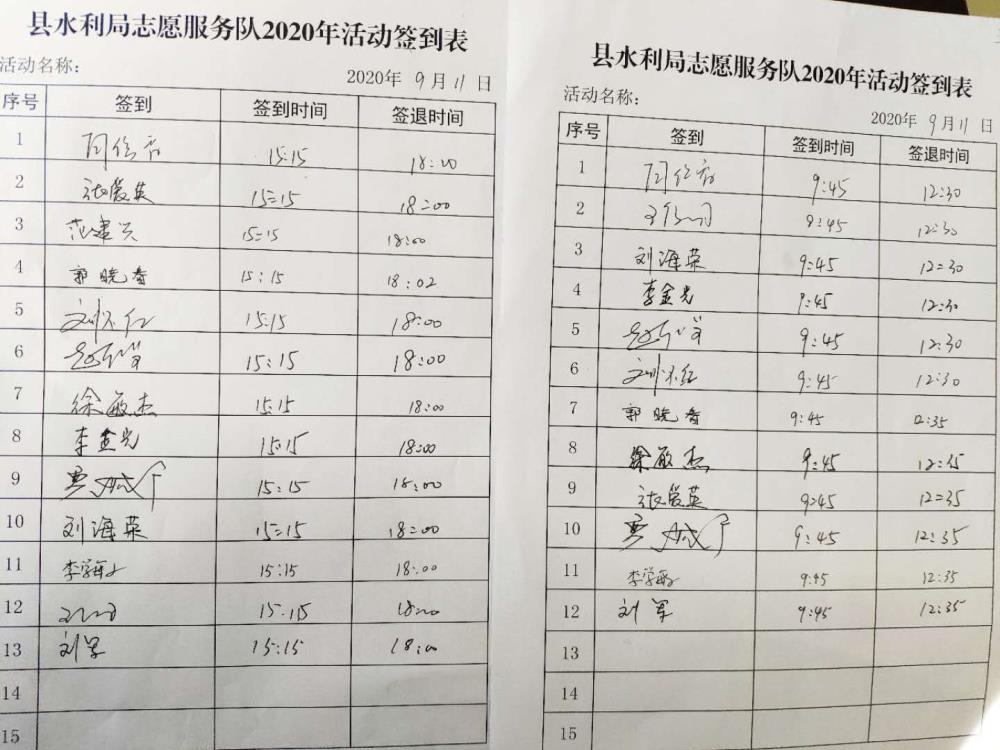 县水利局志愿服务队2020年活动签到表
活动名称：
2020年 9月11日
序号 签到 签到时间 签退时间
1 15:15 18:00
2 张爱英 15:15 18:00
3 范建兴 15:15 18:00
4 郭晓香 15:15 18:02
5 刘怀红 15:15 18:00
6 15:15 18:00
7 徐敏杰 15:15 18:00
8 李金光 15:15 18:00
9 15:15 18:00
10 刘海英 15:15 18:00
11 15:15 18:00
12 15:15 18:00
13 刘军 15:15 18:00
14
15
县水利局志愿服务队2020年活动签到表
活动名称：
2020年 9月11日
序号 签到 签到时间 签退时间
1 9:45 12:30
2 9:45 12:30
3 刘海英 9:45 12:30
4 李金光 9:45 12:30
5 9:45 12:30
6 刘怀红 9:45 12:30
7 郭晓香 9:45 12:35
8 徐敏杰 9:45 12:35
9 张爱英 9:45 12:35
10 9:45 12:35
11 9:45 12:35
12 刘军 9:45 12:35
13
14
15